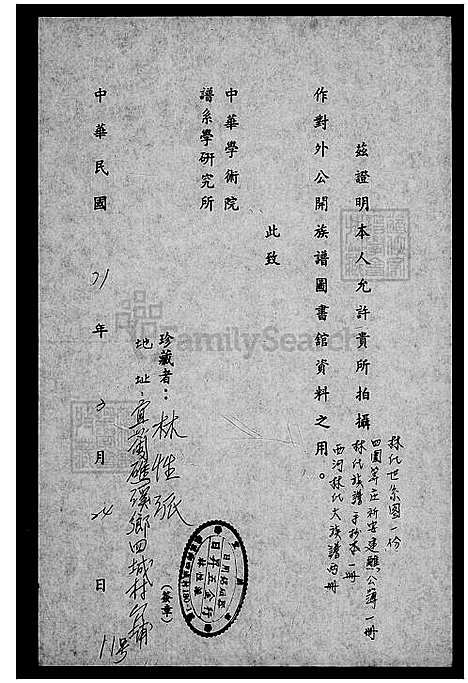 茲證明本人允許貴所拍攝
林氏世系圖一份
四圍羣庄祈安建醮公簿一冊
林氏族譜手抄本一冊
西河林氏大族譜兩冊
作對外公開族譜圖書館資料之用。
此致
中華學術院
譜系學研究所
珍藏者：林性派
(簽章)
地址：宜蘭礁溪鄉四城村
11號
中華民國 71 年 3 月 24 日
FamilySearch